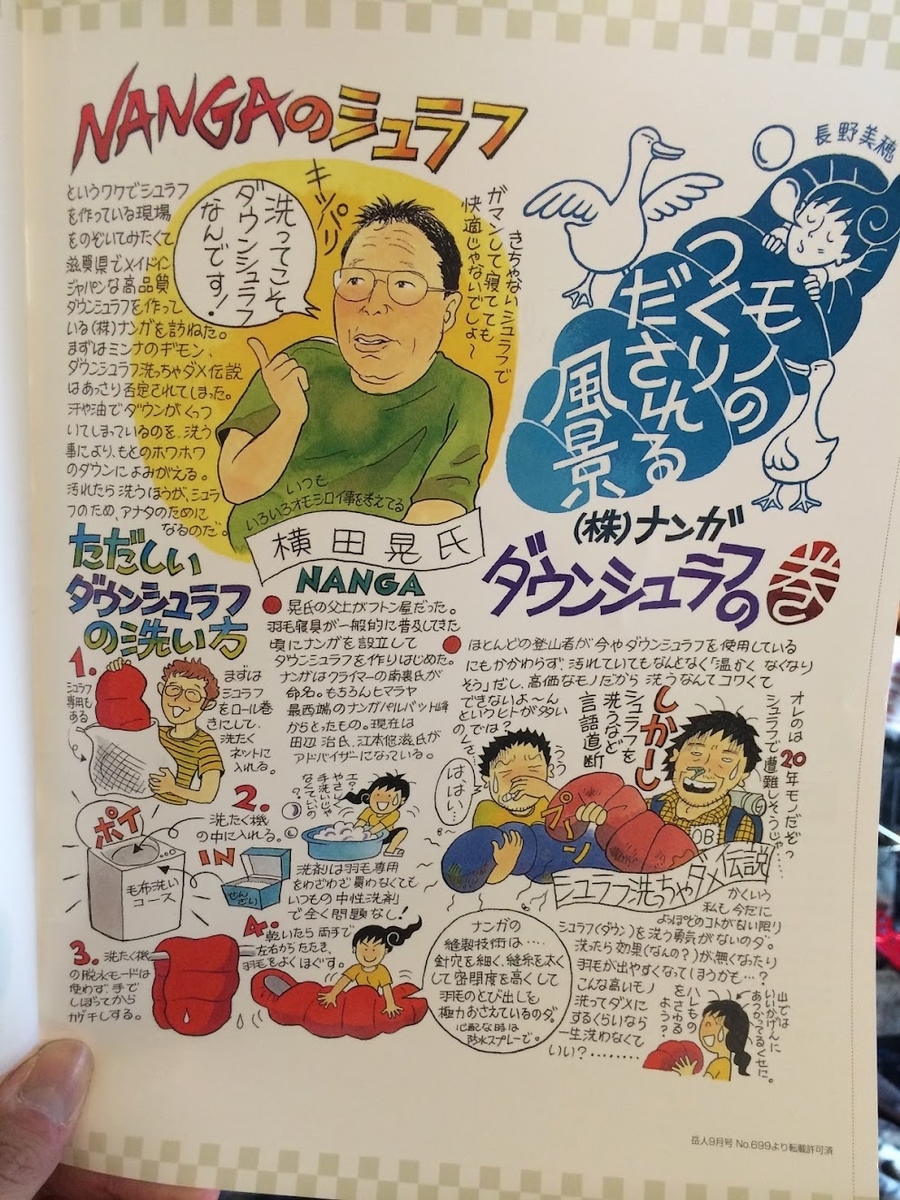 長野美穂
モノの
つくり
だされる
風景
(株)ナンガ
ダウンシュラフの巻
ほとんどの登山者が今やダウンシュラフを使用している
にもかかわらず、汚れていてもなんとなく「温かくなくなり
そう」だし、高価なモノだから洗うなんてコワくて
できないよ〜ん
というヒトが多い
のでは?
しかーし
シュラフを
洗うなど
言語道断
オレのは20年モノだぞっ
シュラフで遭難しそうじゃ…
はぁ…
プ〜ン
OB
シュラフ洗っちゃダメ伝説
かくいう
私も今だに
よっぽどのコトがない限り
シュラフ(ダウン)を洗う勇気がないのダ。
洗ったら効果(なんの?)が無くなったり
羽毛が出やすくなってほうかも…?
こんな高いモノ
洗ってダメに
するくらいなら
一生洗わなくて
いい?………
ハレモノ
をさわる
ような?
山では
いいかげんに
あつかってるくせに。
NANGAのシュラフ
というワケでシュラフ
を作っている現場
をのぞいてみたくて
滋賀県でメイドイン
ジャパンな高品質
ダウンシュラフを作って
いる(株)ナンガを訪ねた。
まずはミンナのギモン、
ダウンシュラフ洗っちゃダメ伝説
はあっさり否定されてしまった。
汗や油でダウンがくっつ
いてしまっているのを、洗う
事により、もとのホワホワ
のダウンによみがえる。
汚れたら洗うほうが、シュラ
フのため、アナタのために
なるのだ。
洗ってこそ
ダウンシュラフ
なんです!
キッパリ
きちゃないシュラフで
ガマンして寝てても
快適じゃないでしょ〜
いつも
いろいろオモシロイ事を考えてる
横田晃氏
NANGA
晃氏の父上がフトン屋だった。
羽毛寝具が一般的に普及してきた
頃にナンガを設立して
ダウンシュラフを作りはじめた。
ナンガはクライマーの南裏氏が
命名。もちろんヒマラヤ
最西端のナンガパルバット峰
からとったもの。現在は
田辺治氏、江本悠滋氏が
アドバイザーになっている。
ただしい
ダウンシュラフ
の洗い方
1.
シュラフ
専用も
ある
まずは
シュラフ
をロール巻
きにして、
洗たく
ネットに
入れる。
2.
洗たく機
の中に入れる。
ポイ
毛布洗い
コース
IN
せんざい
エ?
やさしく
手洗いじゃ
なくていいの?
洗剤は羽毛専用
をわざわざ買わなくても
いつもの中性洗剤
で全く問題なし!
3.
洗たく機
の脱水モードは
使わず、手で
しぼってから
カゲ干しする。
4.
乾いたら両手で
左右からたたき、
羽毛をよくほぐす。
ナンガの
縫製技術は…
針穴を細く、縫糸を太く
して密閉度を高くして
羽毛のとび出しを
極力おさえているのダ。
心配な時は
防水スプレーで。
岳人9月号 No.699より転載許可済